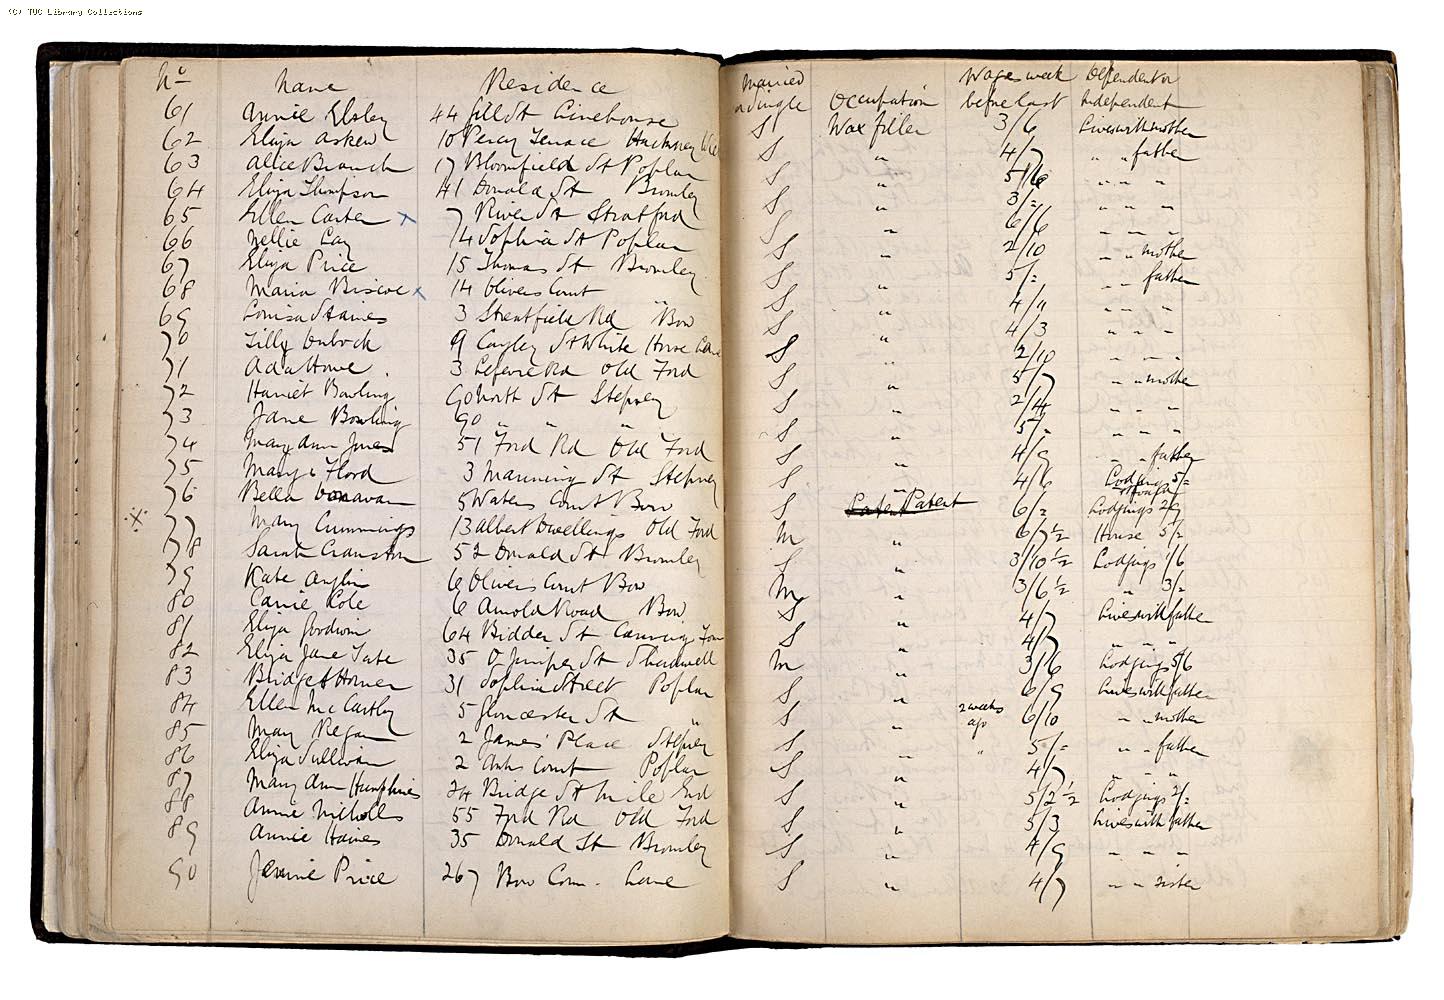 (C) TUC Library Collections
No Name Residence Married or Single Occupation Wages week before last Dependent or Independent
61 Annie Elsley 44 Gill St Limehouse S Wax filler 3/6 Lives with mother
62 Eliza Askew 10 Percy Terrace Hackney S " 4/7 " " father
63 Alice Branch 17 Bloomfield St Poplar S " 5/6 " " "
64 Eliza Thompson 41 Donald St Bromley S " 3/- " " "
65 Ellen Carter x 7 River St Stratford S " 6/6 " " "
66 Nellie Lay 74 Sophia St Poplar S " 2/10 " " mother
67 Eliza Price 15 Thomas St Bromley S " 5/- father
68 Maria Biscoe x 14 Olivers Court S " 4/11 " " "
69 Louisa Staines 3 Strentfield Rd Bow S " 4/3 " " "
70 Tilly 9 Cayley St White Horse Lane S " 2/10 " " "
71 Ada Howe 3 Lefevre Rd Old Ford S " 5/7 " " mother
72 Harriet Bowling 90 North St Stepney S " 2/4 " " "
73 Jane Bowling 90 " " " S " 5/- " " "
74 Mary Ann Jones 51 Ford Rd Old Ford S " 4/9 " " father
75 Mary Flord 3 Manning St Stepney S " 4/6 Lodgings 5/-
76 Bella Donavan 5 Waters Court Bow S Patent 6/2 Lodgings 2/9
77 Mary Cummings 13 Albert Dwellings Old Ford M " 6/7½ House 5/-
78 Sarah Cranston 52 Donald St Bromley S " 3/10½ Lodgings 1/6
79 Kate Anglin 6 Olivers Court Bow M " 3/6½ " 3/-
80 Carrie Cole 6 Arnold Road Bow S " 4/7 Lives with father
81 Eliza Goodwin 64 Bidder St Canning Town S " 4/7 " " "
82 Eliza Jane Tate 35 Juniper St Shadwell M " 3/6 Lodgings 5/6
83 Bridget Horner 31 Sophia Street Poplar S " 6/9 Lives with father
84 Ellen McCarthy 5 Gloucester St " S " 2 weeks ago 6/10 " " mother
85 Mary Regan 2 James' Place Stepney S " " 5/- " " father
86 Eliza Sullivan 2 Court Poplar S " 4/7 " " "
87 Mary Ann Humphries 24 Bridge St Mile End S " 5/2½ Lodgings 2/-
88 Annie Nicholls 55 Ford Rd Old Ford S " 5/3 Lives with father
89 Annie Haines 35 Donald St Bromley S " 4/9 " " "
90 Jennie Price 267 Bow Com. Lane S " 4/7 " " sister